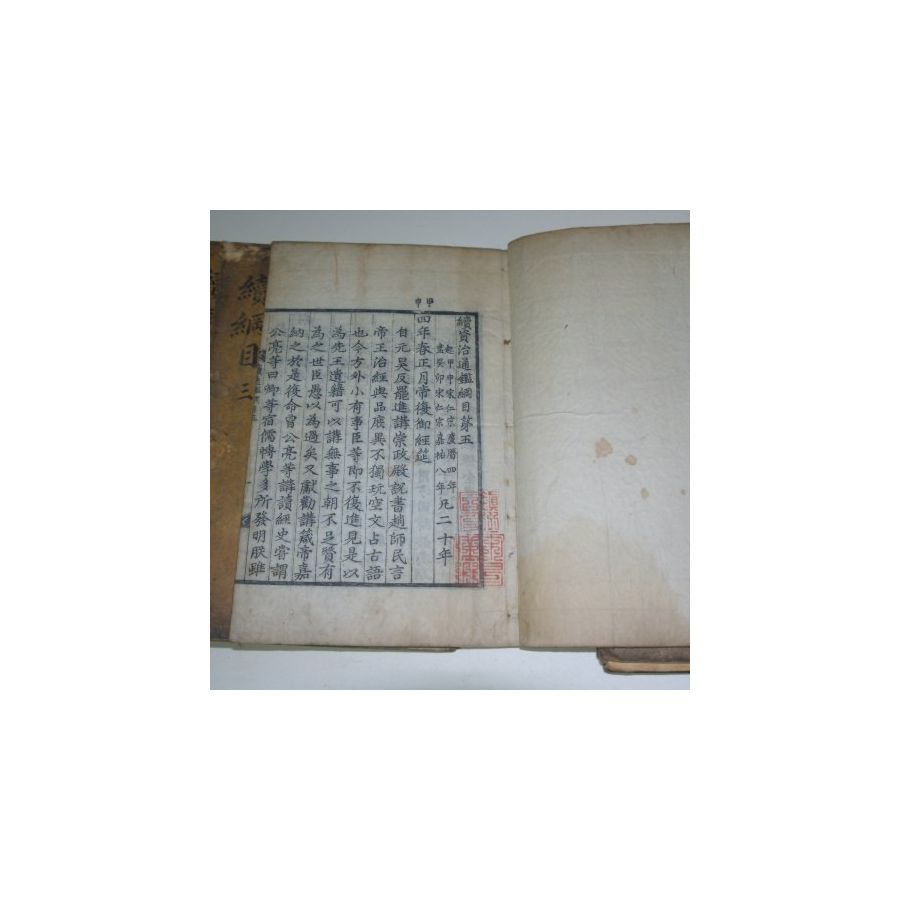 續資治通鑑綱目第五
起甲申宋仁宗慶曆四年
盡癸卯宋仁宗嘉祐八年
凡二十年
甲申
四年春正月帝復御經筵
自元昊反罷進講崇政殿說書趙師民言
帝王治經與品庶異不獨玩空文占古語
也今方外小有事臣等即不復進見是以
為先王遺籍可以講無事之朝不足贊有
為之世臣愚以為過矣又獻勸講箴帝嘉
納之於是復命曾公亮等講讀經史嘗謂
公亮等曰卿等宿儒博學多所發明朕雖
續綱目
三